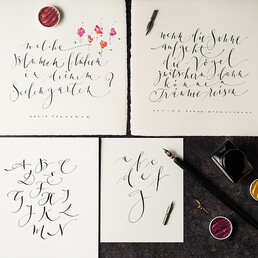 welche
Blumen blühen
in deinem
Seelengarten ?
wenn die Sonne
aufgeht
die Vögel
zwitschern dann
können
Träume reisen
A B C
D E F
G H I
J K L
M N
a b c
d e f
g